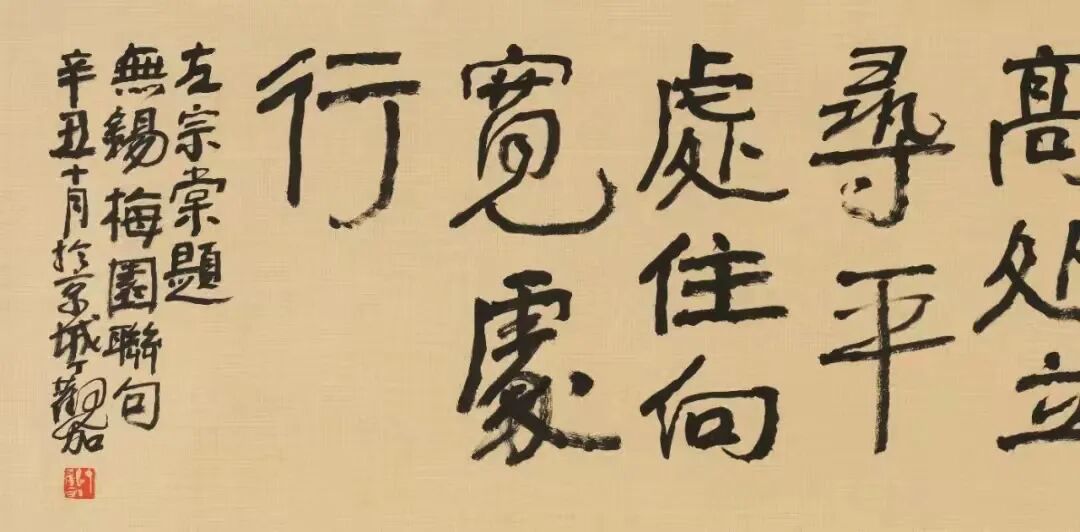 高处立
尋平
處住向
寬處
行
左宗棠題
無錫梅園聯句
辛丑十月於京城丁觀加